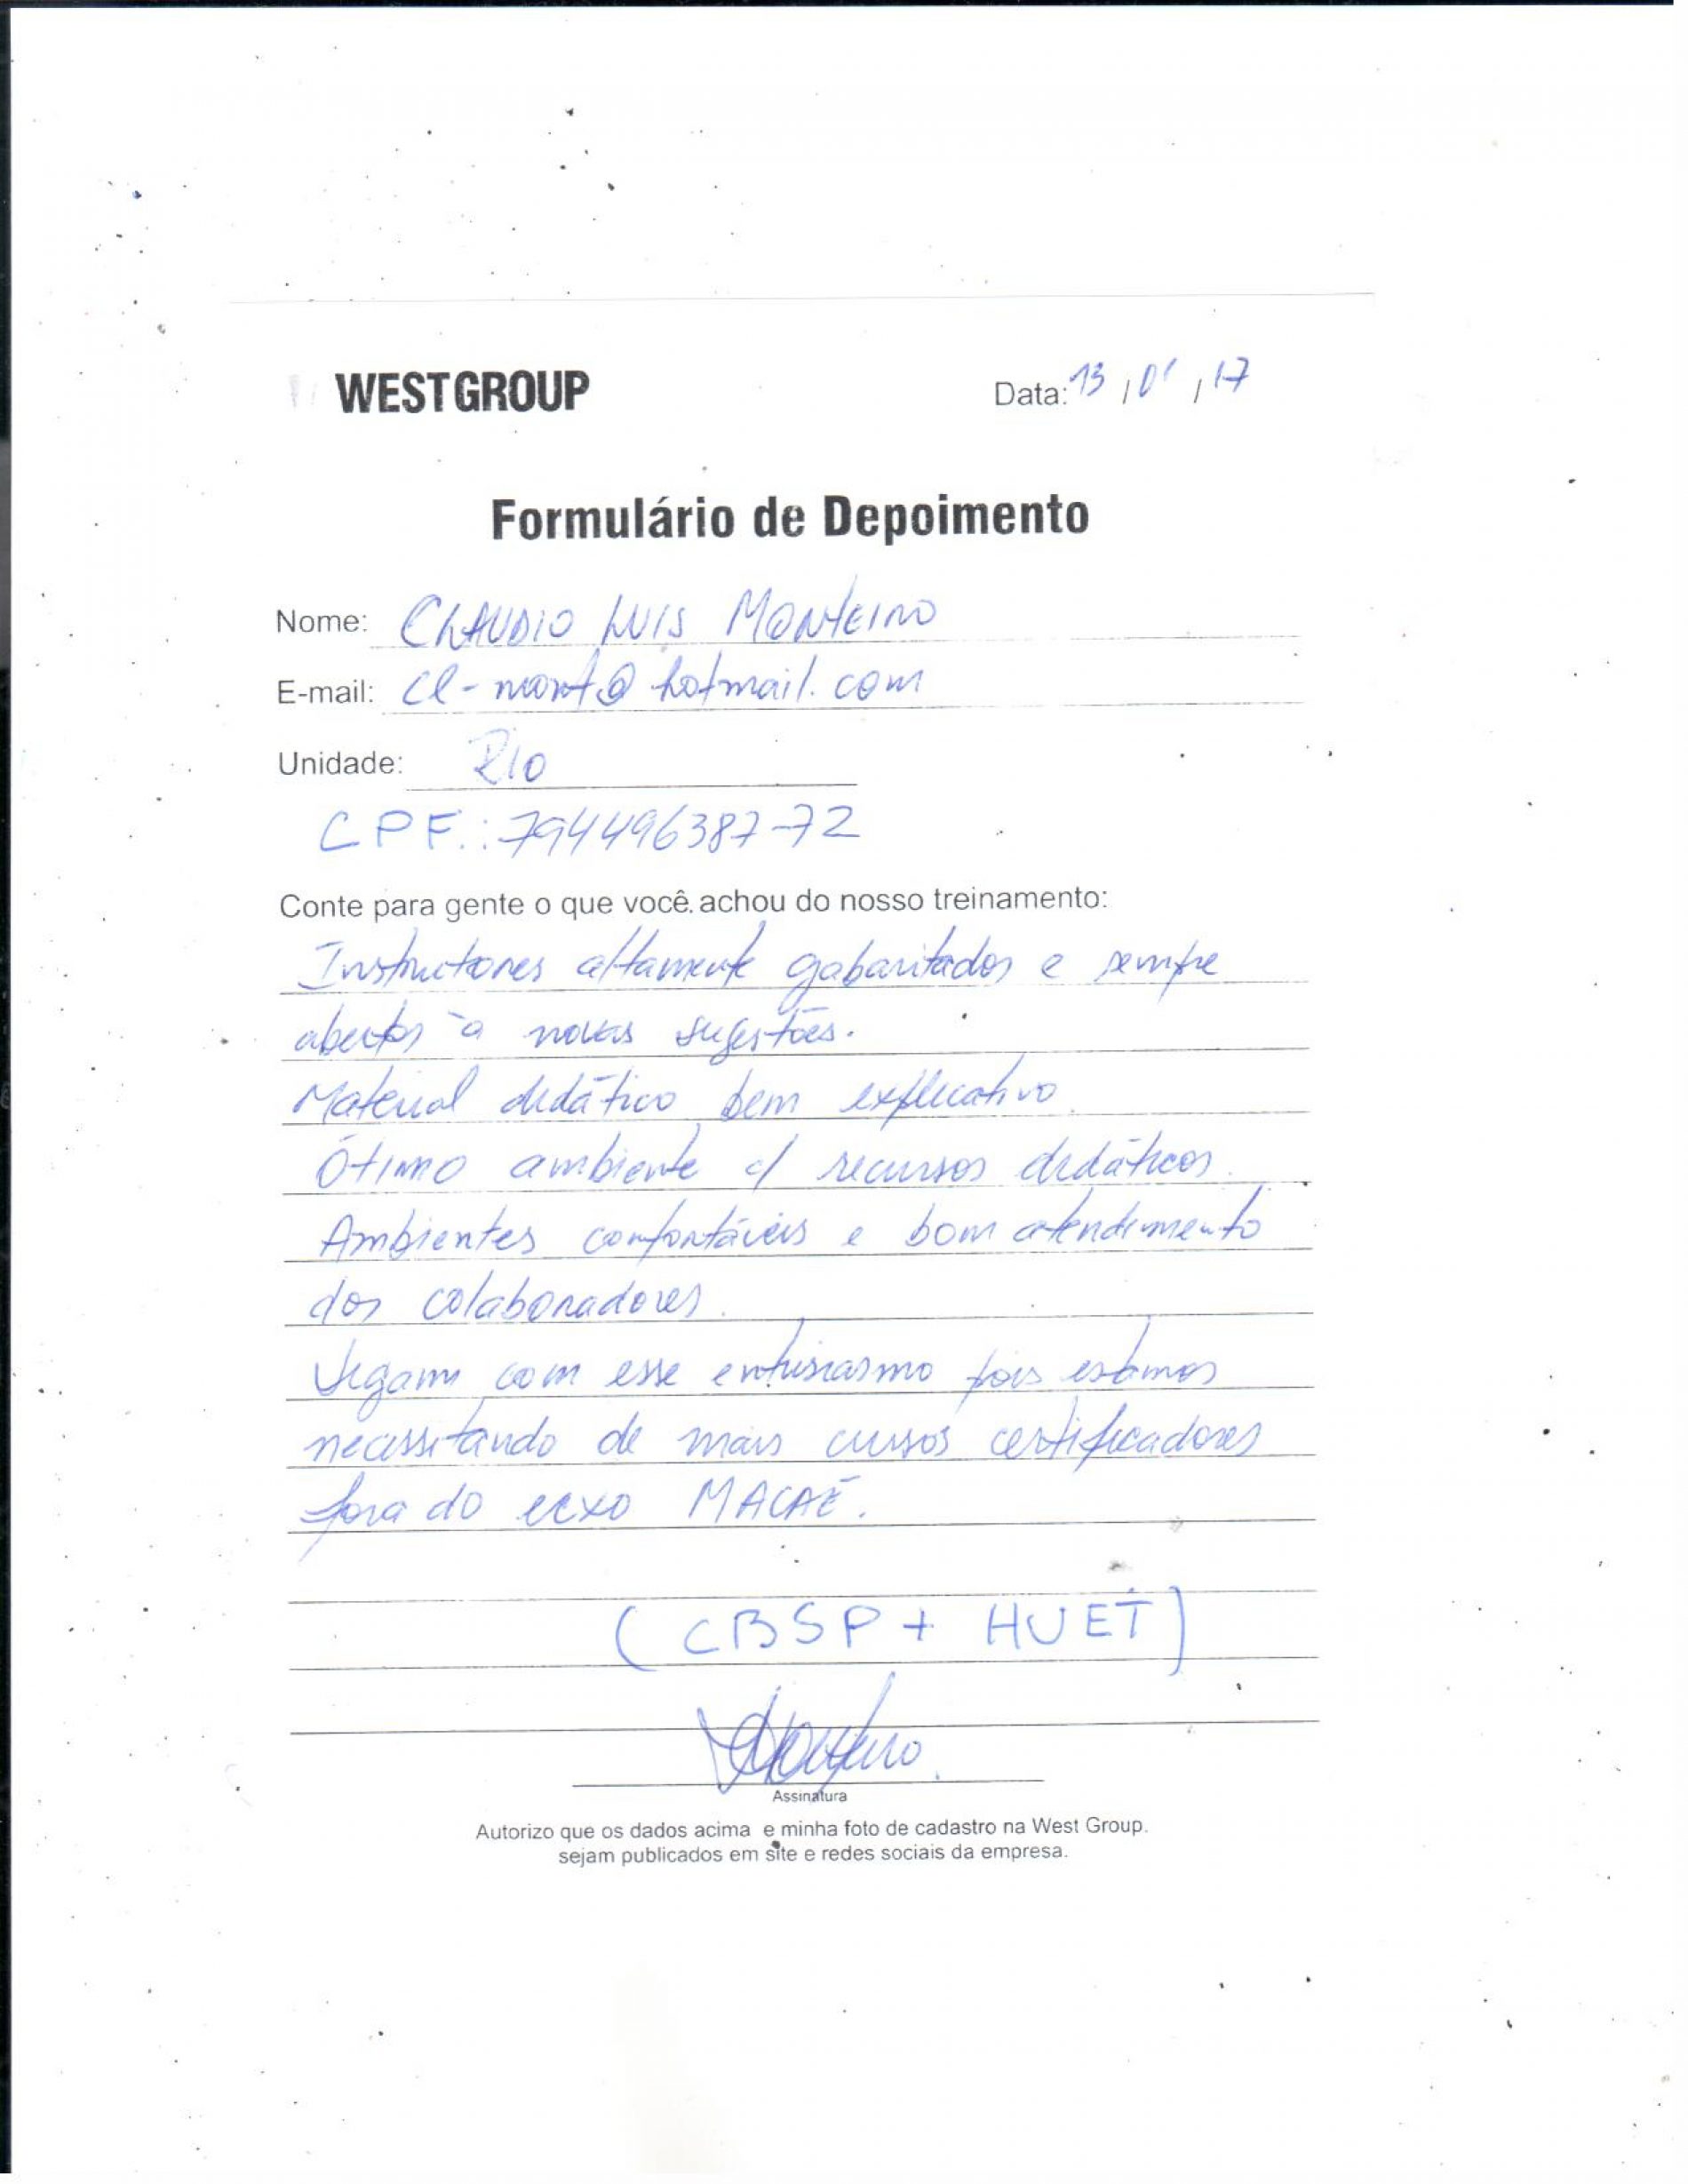 WEST GROUP
Data: 13 / 01 / 17
Formulário de Depoimento
Nome: CLAUDIO LUIS MONTEIRO
E-mail: cl-mont@hotmail.com
Unidade: RIO
CPF.: 794496387-72
Conte para gente o que você achou do nosso treinamento:
Instructores altamente gabaritados e sempre
abertos à novas sugestões.
Material didático bem explicativo
Ótimo ambiente c/ recursos didáticos.
Ambientes confortáveis e bom atendimento
dos colaboradores.
Sigam com esse entusiasmo pois estamos
necessitando de mais cursos certificadores
fora do eixo MACAÉ.
(CBSP + HUET)
Monteiro
Assinatura
Autorizo que os dados acima e minha foto de cadastro na West Group.
sejam publicados em site e redes sociais da empresa.